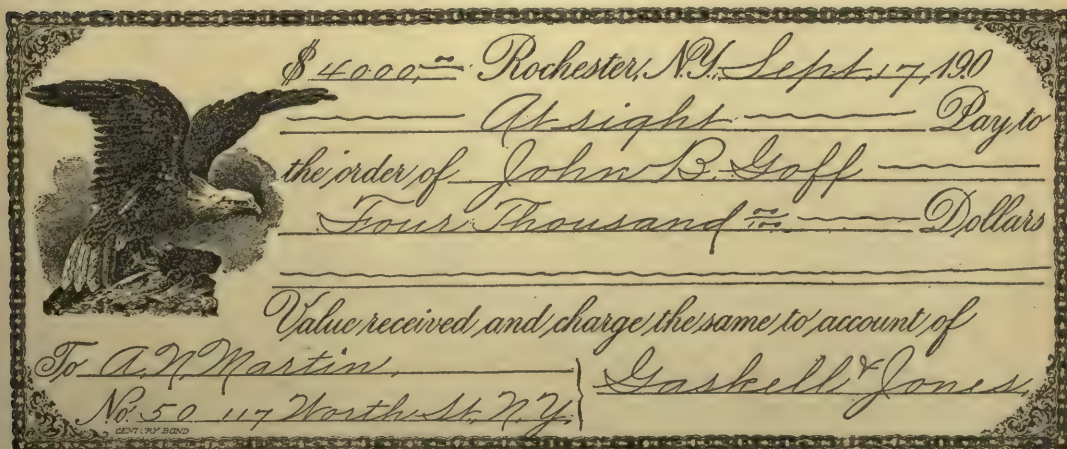 $ 4000,00 Rochester, N.Y. Sept. 17, 190
At sight Pay to
the order of John B. Goff
Four Thousand 00/100 Dollars
Value received and charge the same to account of
To A. N. Martin,
Gaskell & Jones,
No. 50 117 Worth St. N.Y.
CENTURY BOND